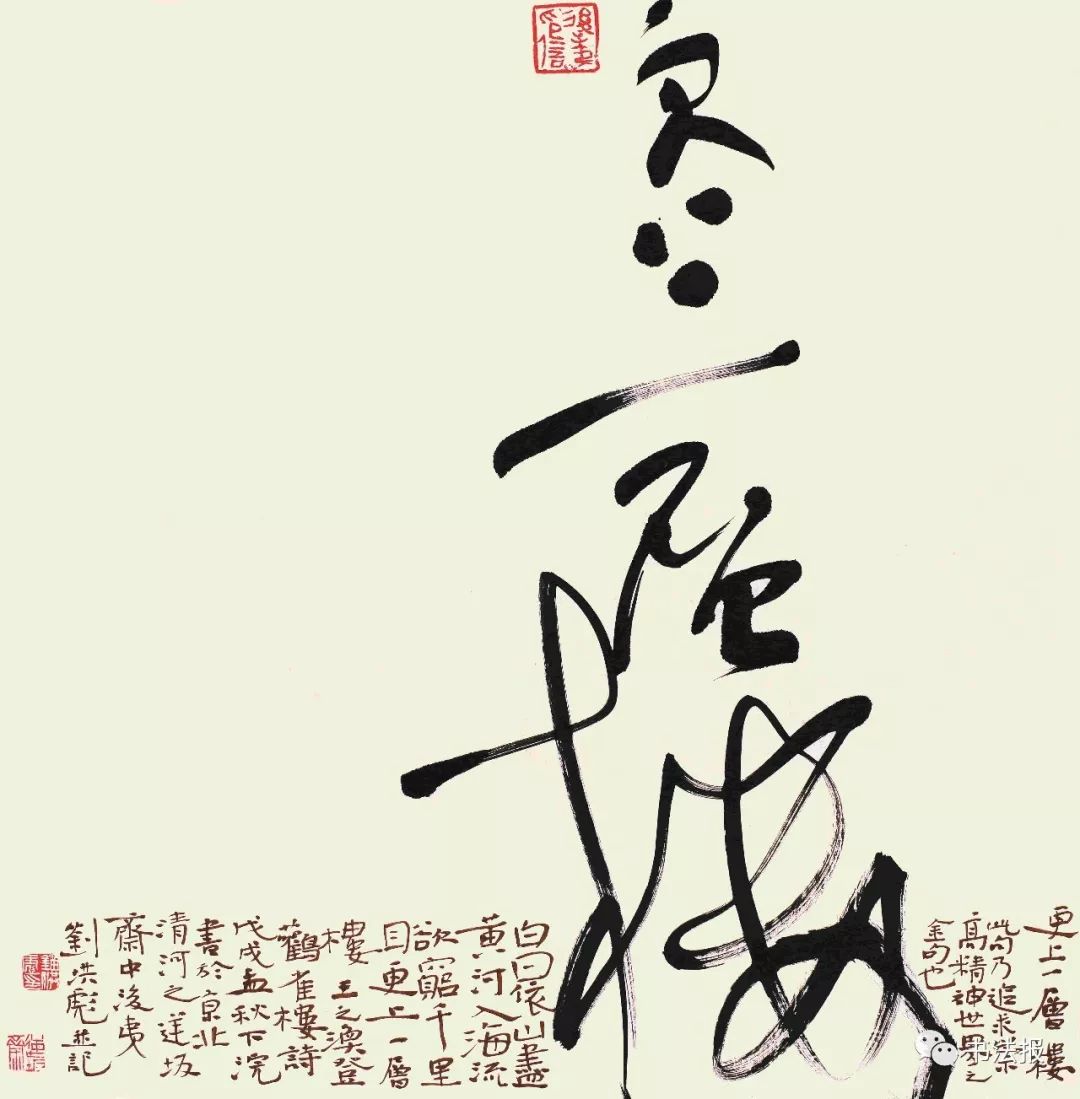 更上一層樓
更上一層樓
此句乃追求崇
高精神世界之
金句也
白日依山盡
黄河入海流
欲窮千里
目更上一層
樓 王之渙登
鸛雀樓詩
戊戌孟秋下浣
書於京北
清河之逆坂
齋中後夷
劉洪彪并記
後夷印信
书法报